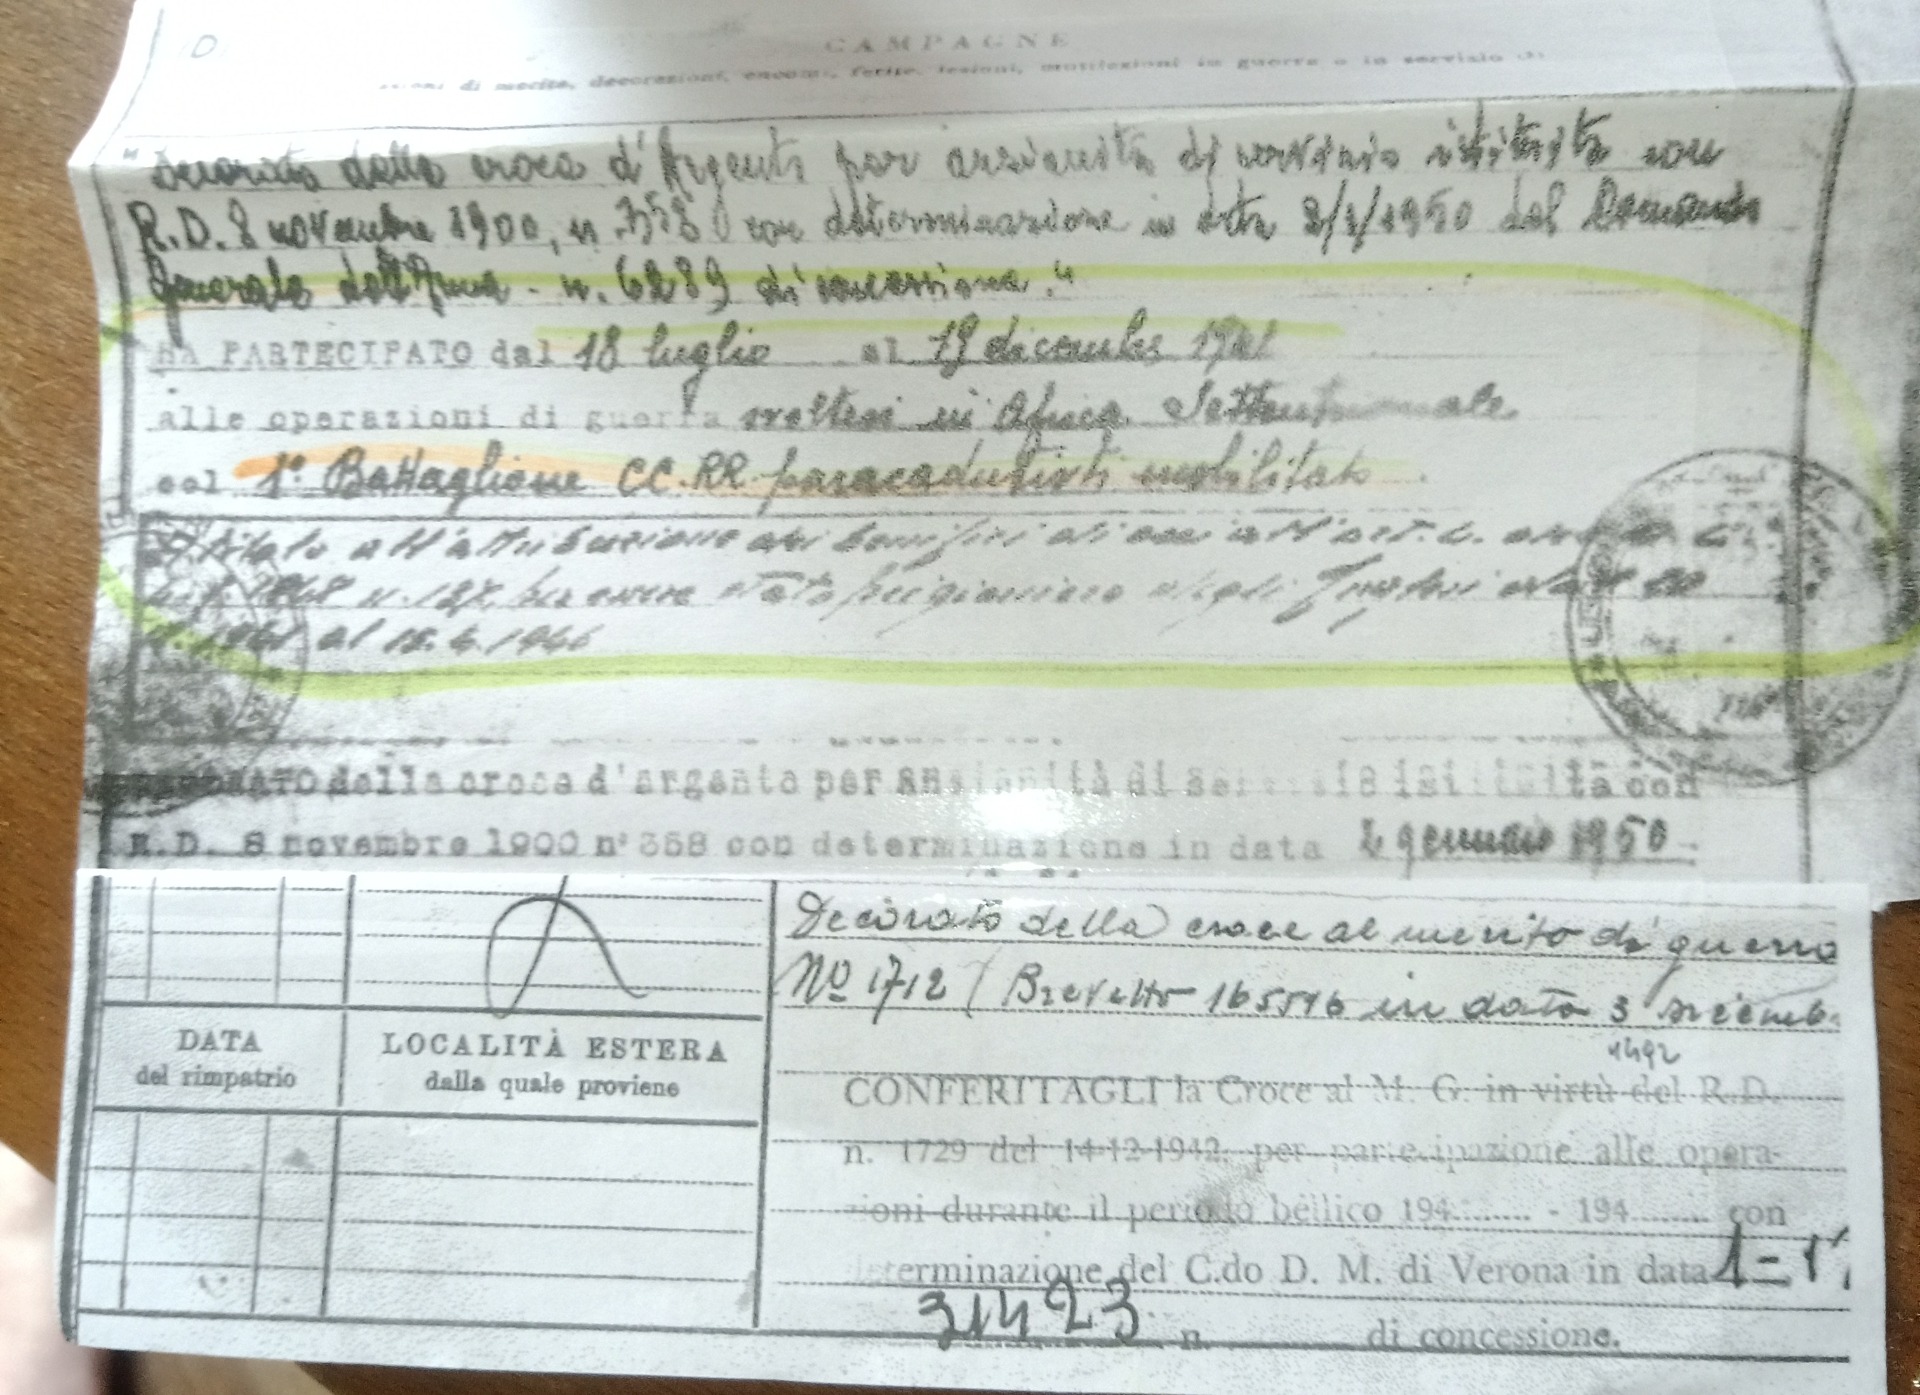 CAMPAGNE
di merito, decorazioni, encomi, ferite, lesioni, mutilazioni in guerra o in servizio
" Decorato della croce d'Argento per anzianità di servizio istituita con
R.D. 8 novembre 1900, n. 358 con determinazione in data 2/1/1950 del Comando
Generale dell'Arma - n. 6289 di concessione."
HA PARTECIPATO dal 18 luglio al 19 dicembre 1941
alle operazioni di guerra svoltesi in Africa Settentrionale
col 1° Battaglione CC.RR. paracadutisti mobilitato
all'attribuzione dei benefici di cui all'art. 6.
1948 n. 137 per essere stato prigioniero degli Inglesi
1941 al 12.4.1946
della croce d'argento per anzianità di con
R.D. 8 novembre 1900 n° 358 con determinazione in data 2 gennaio 1950
Decorato della croce al merito di guerra
Nº 1712 Brevetto 165516 in data 3
DATA
del rimpatrio
LOCALITÀ ESTERA
dalla quale proviene
CONFERITAGLI la Croce al M. G. in virtù del R.D.
n. 1729 del 14-12-1942, per partecipazione alle opera-
zioni durante il periodo bellico 194........ - 194........ con
determinazione del C.do D. M. di Verona in data
31423 n. di concessione.